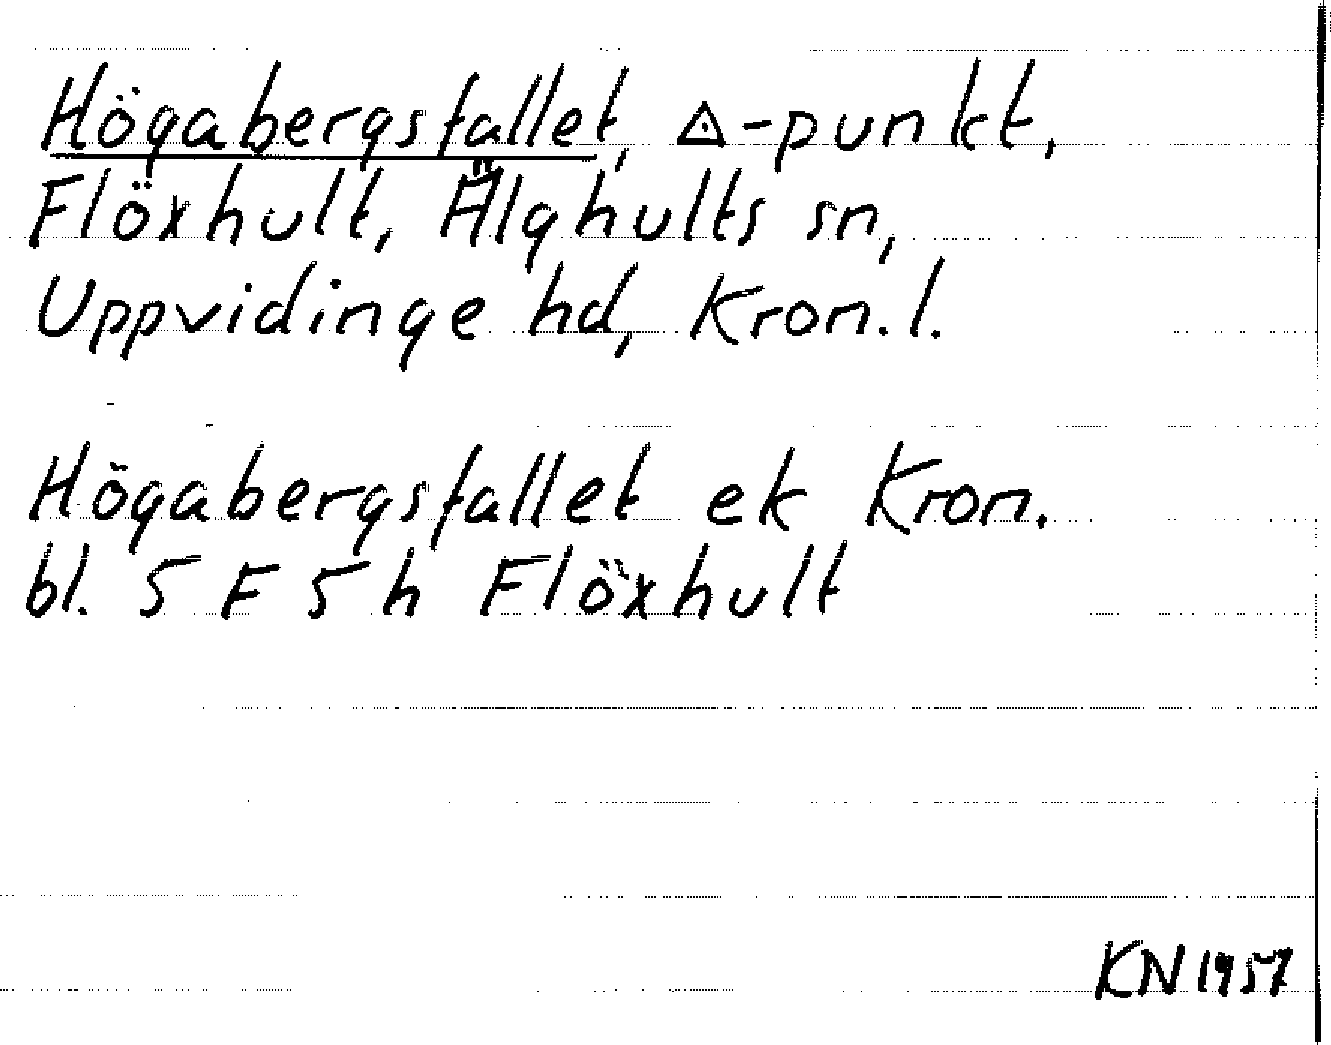 Högabergsfallet, △-punkt,
Flöxhult, Älghults sn,
Uppvidinge hd, Kron. l.
Högabergsfallet ek Kron.
bl. 5 F 5 h Flöxhult
KN 1957